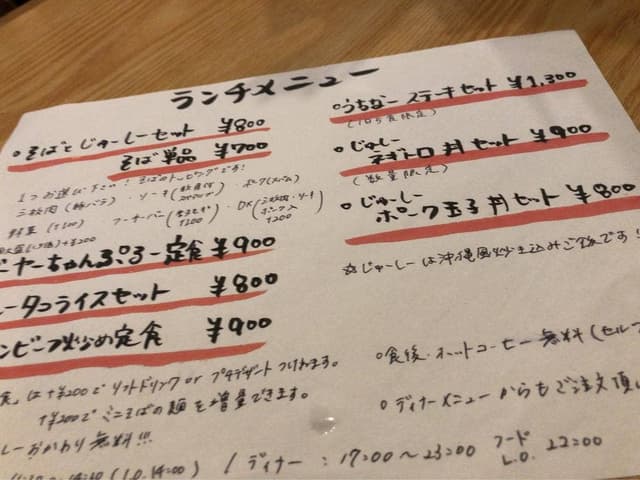 ランチメニュー
そばとじゅーしーセット ¥800
そば単品 ¥700
1つお選び下さい! そばのトッピングです!
三枚肉(豚バラ)・ソーキ
・ポーク(スパム)
野菜(+100)
フーチバー
・DX(三枚肉・ソーキ
+200
+¥200
ーヤーちゃんぷるー定食 ¥900
ータコライスセット ¥800
ンビーフ炒め定食 ¥900
食」は+¥200でソフトドリンク or プチデザートつけれます。
+¥200でミニそばの麺を増量できます。
ーおかわり無料!!!
(L.O.14:00) / ディナー : 17:00〜23:00 フード L.O. 22:00
うちなーステーキセット ¥1,300
(10食限定)
じゅーしー
ネギトロ丼セット ¥900
(数量限定)
じゅーしー
ポーク玉子丼セット ¥800
☆じゅーしーは沖縄風炊き込みご飯です!
食後・ホットコーヒー無料(セルフ
ディナーメニューからもご注文頂